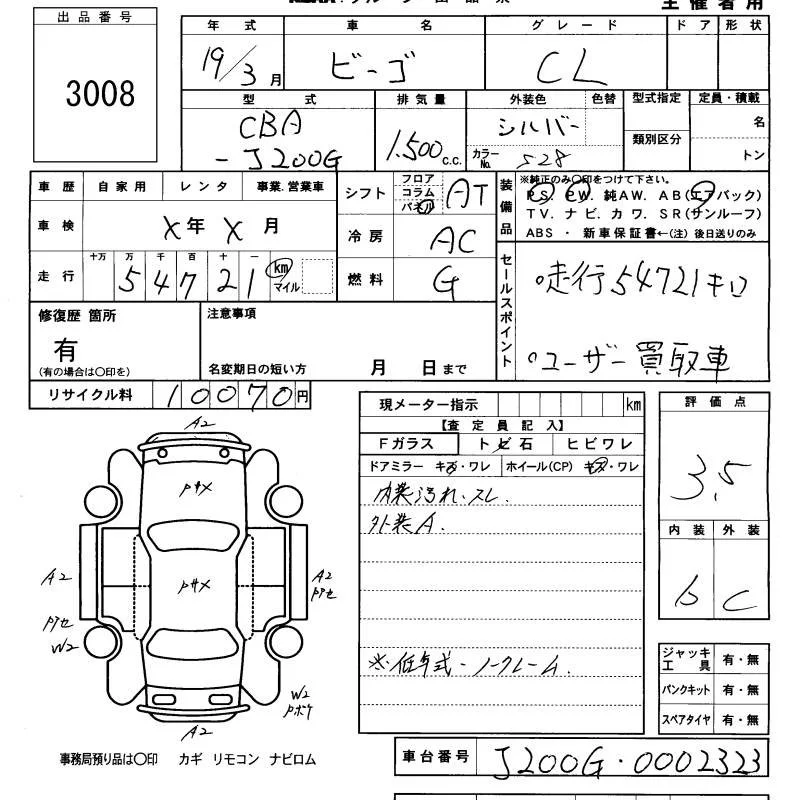 主催者用
出品番号
3008
年式 車名 グレード ドア 形状
19/3月 ビーゴ CL
型式 排気量 外装色 色替 型式指定 定員・積載
CBA
-J200G 1.500c.c. シルバー 名
カラーNo. 528 類別区分 トン
車歴 自家用 レンタ 事業.営業車
シフト フロア コラム パネル AT
装備品 ※純正のみ〇印をつけて下さい。
PS. PW. 純AW. AB(エアバック)
TV. ナビ. カワ. SR(サンルーフ)
ABS ・ 新車保証書←(注) 後日送りのみ
車検 X年X月
冷房 AC
走行 十万 万 千 百 十 一
54721 km マイル
燃料 G
セールスポイント
走行54721キロ
ユーザー買取車
修復歴 箇所
有
(有の場合は〇印を)
注意事項
名変期日の短い方 月 日まで
リサイクル料 10070円
現メーター指示 km
【査定員記入】
Fガラス トビ石 ヒビワレ
ドアミラー キズ・ワレ ホイール(CP) キズ・ワレ
内装汚れ.スレ.
外装A.
※低年式-ノークレーム.
評価点
3.5
内装 外装
b c
ジャッキ工具 有・無
パンクキット 有・無
スペアタイヤ 有・無
A2
Pサメ
A2
Pサメ
A2
Pアセ
Pアセ
W2
W2
Pボケ
A2
事務局預り品は〇印 カギ リモコン ナビロム
車台番号 J200G・0002323